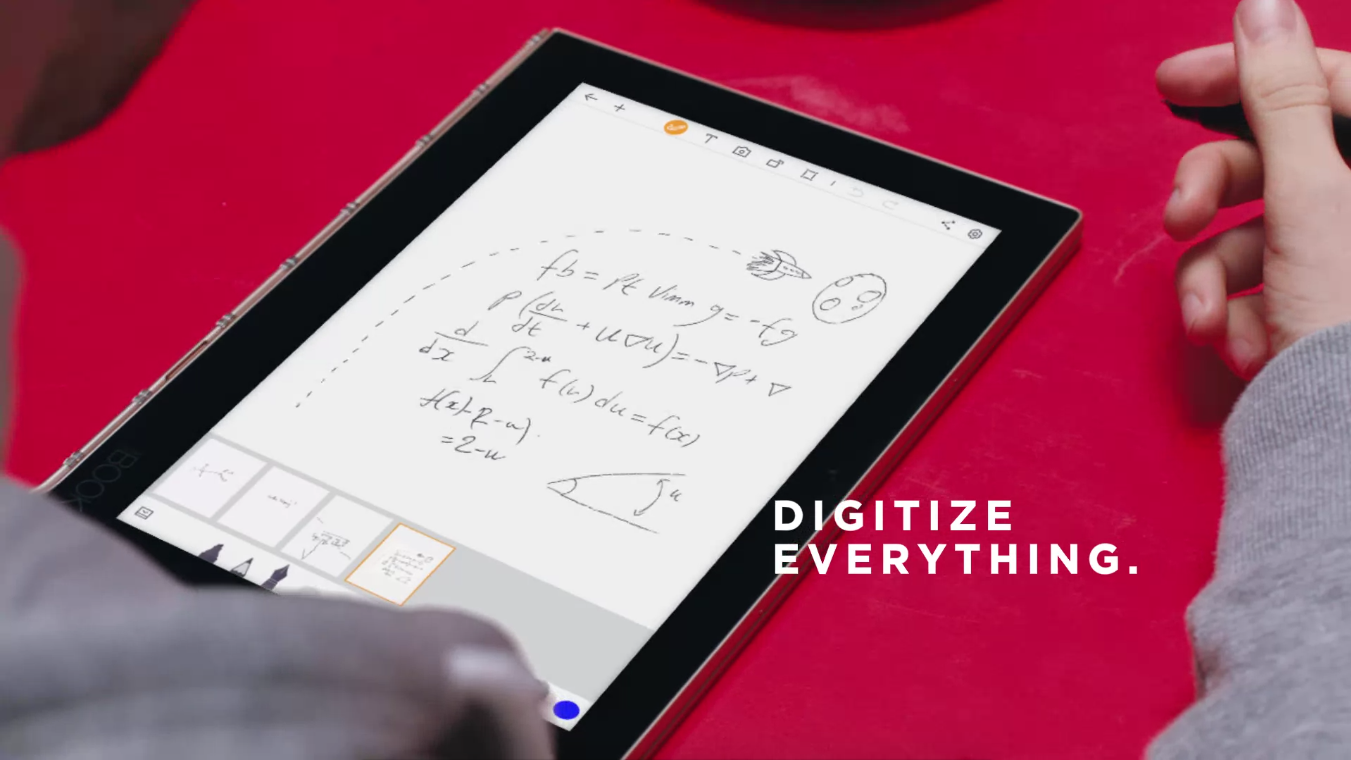 fb = Pt Vimm g = -fg
P (du/dt + u∇u) = -∇P + ∇
d/dx ∫ 2-u f(u) du = f(x)
= 2-u
u
BOOK
DIGITIZE
EVERYTHING.